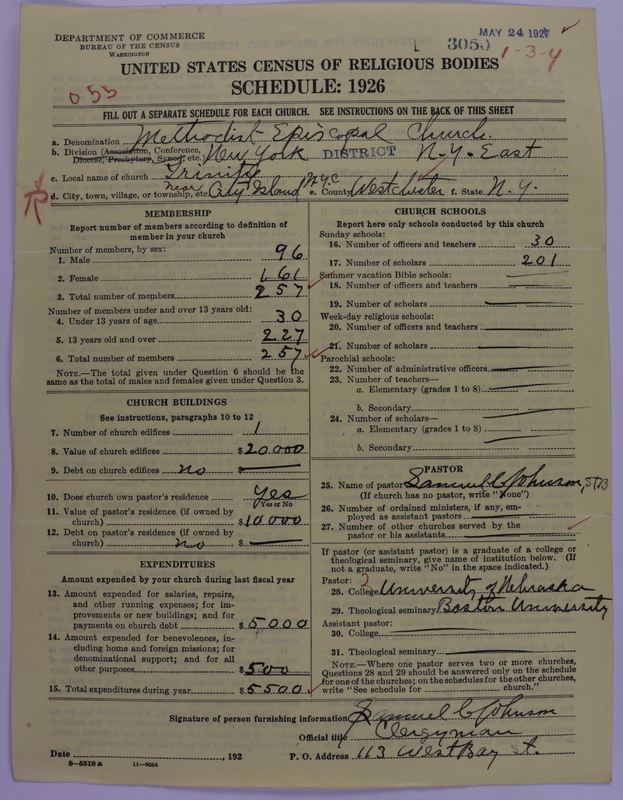 DEPARTMENT OF COMMERCE
BUREAU OF THE CENSUS
WASHINGTON
MAY 24 1927
3050
1-3-4
UNITED STATES CENSUS OF RELIGIOUS BODIES
SCHEDULE: 1926
055
FILL OUT A SEPARATE SCHEDULE FOR EACH CHURCH. SEE INSTRUCTIONS ON THE BACK OF THIS SHEET
a. Denomination Methodist Episcopal Church.
b. Division (Association, Conference, Diocese, Presbytery, Synod, etc.) New York DISTRICT N-Y- East
c. Local name of church Trinity
d. City, town, village, or township, etc. near City Island N.Y.C e. County Westchester f. State N.Y.
MEMBERSHIP
Report number of members according to definition of
member in your church
Number of members, by sex:
1. Male 96
2. Female 161
3. Total number of members 257
Number of members under and over 13 years old:
4. Under 13 years of age 30
5. 13 years old and over 227
6. Total number of members 257
NOTE.—The total given under Question 6 should be the
same as the total of males and females given under Question 3.
CHURCH BUILDINGS
See instructions, paragraphs 10 to 12
7. Number of church edifices 1
8. Value of church edifices $20000
9. Debt on church edifices no $
10. Does church own pastor's residence Yes
Yes or No
11. Value of pastor's residence (if owned by
church) $10,000
12. Debt on pastor's residence (if owned by
church) no $
EXPENDITURES
Amount expended by your church during last fiscal year
13. Amount expended for salaries, repairs,
and other running expenses; for im-
provements or new buildings; and for
payments on church debt $5000
14. Amount expended for benevolences, in-
cluding home and foreign missions; for
denominational support; and for all
other purposes $500
15. Total expenditures during year $5500
CHURCH SCHOOLS
Report here only schools conducted by this church
Sunday schools:
16. Number of officers and teachers 30
17. Number of scholars 201
Summer vacation Bible schools:
18. Number of officers and teachers
19. Number of scholars
Week-day religious schools:
20. Number of officers and teachers
21. Number of scholars
Parochial schools:
22. Number of administrative officers
23. Number of teachers—
a. Elementary (grades 1 to 8)
b. Secondary
24. Number of scholars—
a. Elementary (grades 1 to 8)
b. Secondary
PASTOR
25. Name of pastor Samuel C Johnson, STB
(If church has no pastor, write "None")
26. Number of ordained ministers, if any, em-
ployed as assistant pastors
27. Number of other churches served by the
pastor or his assistants
If pastor (or assistant pastor) is a graduate of a college or
theological seminary, give name of institution below. (If
not a graduate, write "No" in the space indicated.)
Pastor: 2
28. College University of Nebraska
29. Theological seminary Boston University
Assistant pastor:
30. College
31. Theological seminary
NOTE.—Where one pastor serves two or more churches,
Questions 28 and 29 should be answered only on the schedule
for one of the churches; on the schedules for the other churches,
write "See schedule for church."
Signature of person furnishing information Samuel C Johnson
Official title Clergyman
Date , 192 P. O. Address 113 West Bay St.
8—5518 a 11—9054